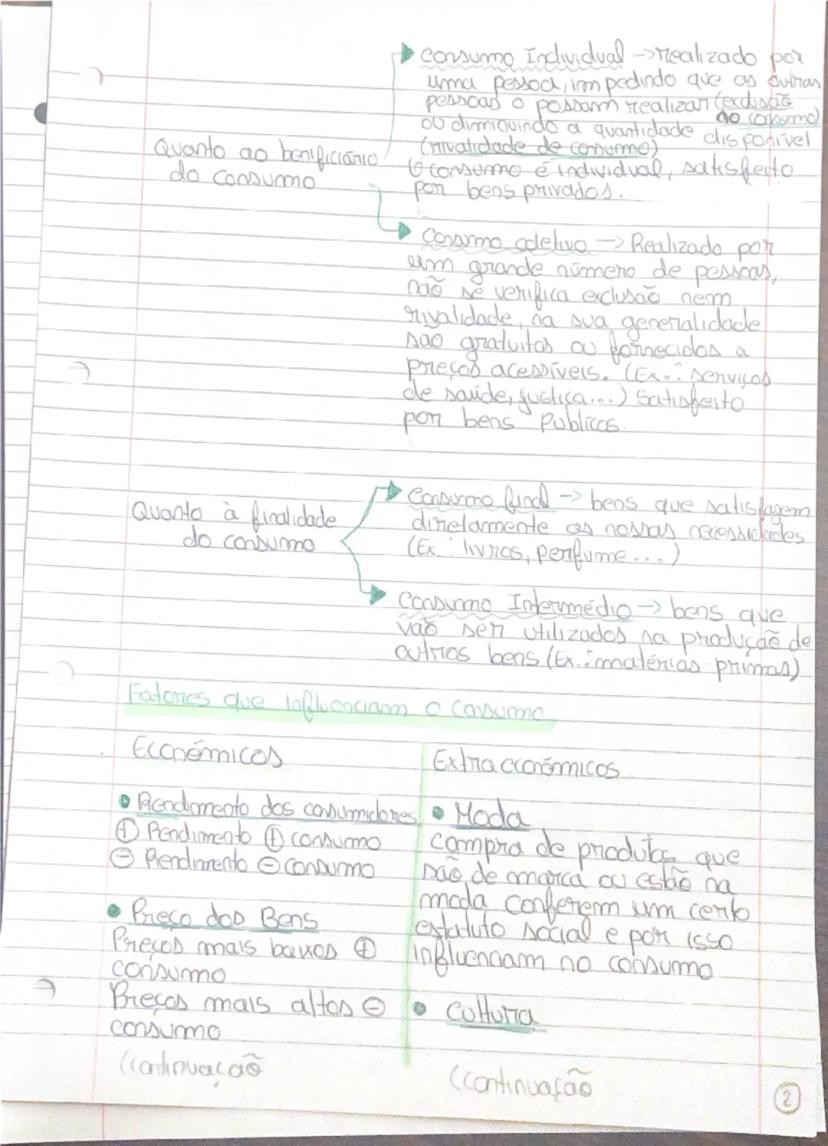 Quanto ao benificiário
do consumo
Consumo Individual → realizado por
uma pessoa, impedindo que as outras
pessoas o possam realizar (exclusão
do consumo)
ou diminuindo a quantidade disponível
(rivalidade de consumo)
O consumo é individual, satisfeito
por bens privados.
Consumo coletivo → Realizado por
um grande número de pessoas,
não se verifica exclusão nem
rivalidade, na sua generalidade
são gratuitos ou fornecidos a
preços acessíveis. (Ex.: serviços
de saúde, justiça...) Satisfeito
por bens Públicos.
Quanto à finalidade
do consumo
Consumo final → bens que satisfagem
diretamente as nossas necessidades
(Ex.: livros, perfume...)
Consumo Intermédio → bens que
vão ser utilizados na produção de
outros bens (Ex.: matérias primas)
Fatores que influenciam o consumo
Económicos
• Rendimento dos consumidores
⊕ Rendimento ⊕ consumo
⊖ Rendimento ⊖ consumo
• Preço dos Bens
Preços mais baixos ⊕
consumo
Preços mais altos ⊖
consumo
(continuação
Extraeconómicos
• Moda
compra de produtos que
são de marca ou estão na
moda conferem um certo
estatuto social e por isso
influenciam no consumo
• Cultura
(continuação
2